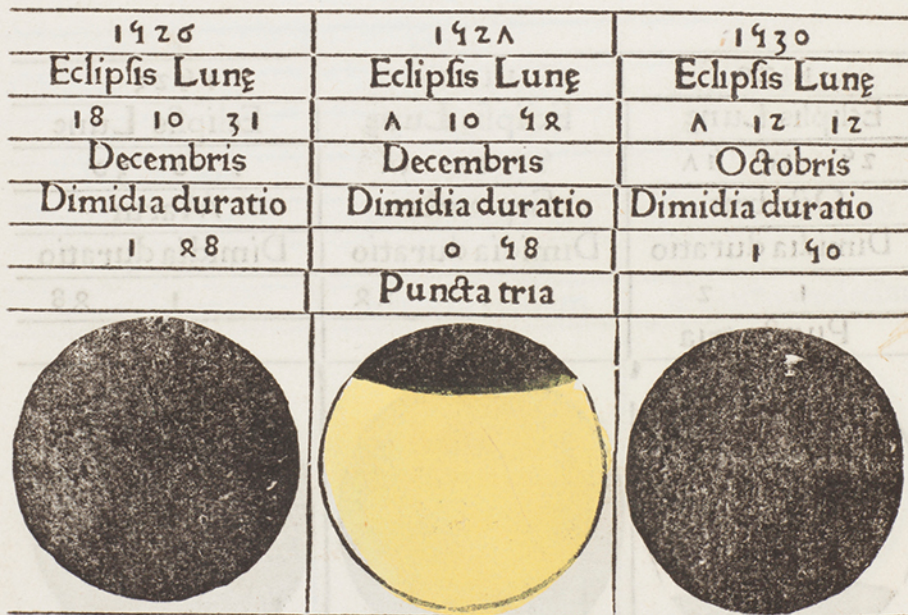 1526 1527 1530
Eclipſis Lunę Eclipſis Lunę Eclipſis Lunę
18 10 31 7 10 54 7 12 12
Decembris Decembris Octobris
Dimidia duratio Dimidia duratio Dimidia duratio
1 48 0 58 1 50
Puncta tria